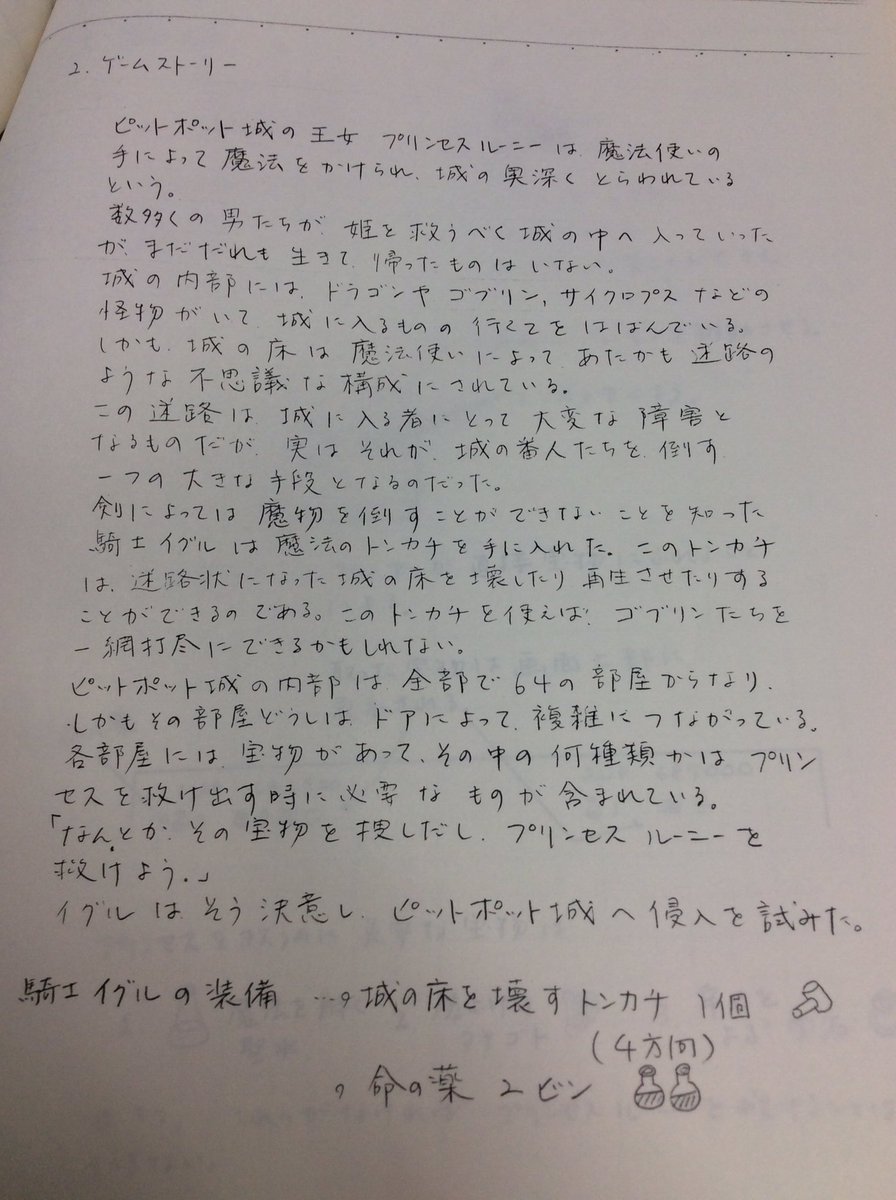 2. ゲームストーリー
ピットポット城の王女 プリンセスルーニーは、魔法使いの
手によって魔法をかけられ、城の奥深くとらわれている
という。
数多くの男たちが、姫を救うべく城の中へ入っていった
が、まだだれも生きて、帰ったものはいない。
城の内部には、ドラゴンや、ゴブリン、サイクロプスなどの
怪物がいて、城に入るものの行くてをはばんでいる。
しかも、城の床は魔法使いによって、あたかも迷路の
ような不思議な構成にされている。
この迷路は、城に入る者にとって大変な障害と
なるものだが、実はそれが、城の番人たちを、倒す
一つの大きな手段となるのだった。
剣によっては魔物を倒すことができないことを知った
騎士イグルは魔法のトンカチを手に入れた。このトンカチ
は、迷路状になった城の床を壊したり再生させたりする
ことができるのである。このトンカチを使えば、ゴブリンたちを
一網打尽にできるかもしれない。
ピットポット城の内部は、全部で64の部屋からなり、
しかもその部屋どうしは、ドアによって、複雑につながっている。
各部屋には、宝物があって、その中の何種類かは プリン
セスを救け出す時に必要なものが含まれている。
「なんとか、その宝物を捜しだし、プリンセス ルーニーを
救けよう.」
イグルはそう決意し、ピットポット城へ侵入を試みた。
騎士イグルの装備 …。城の床を壊すトンカチ 1個
(4方向)
。命の薬 2ビン